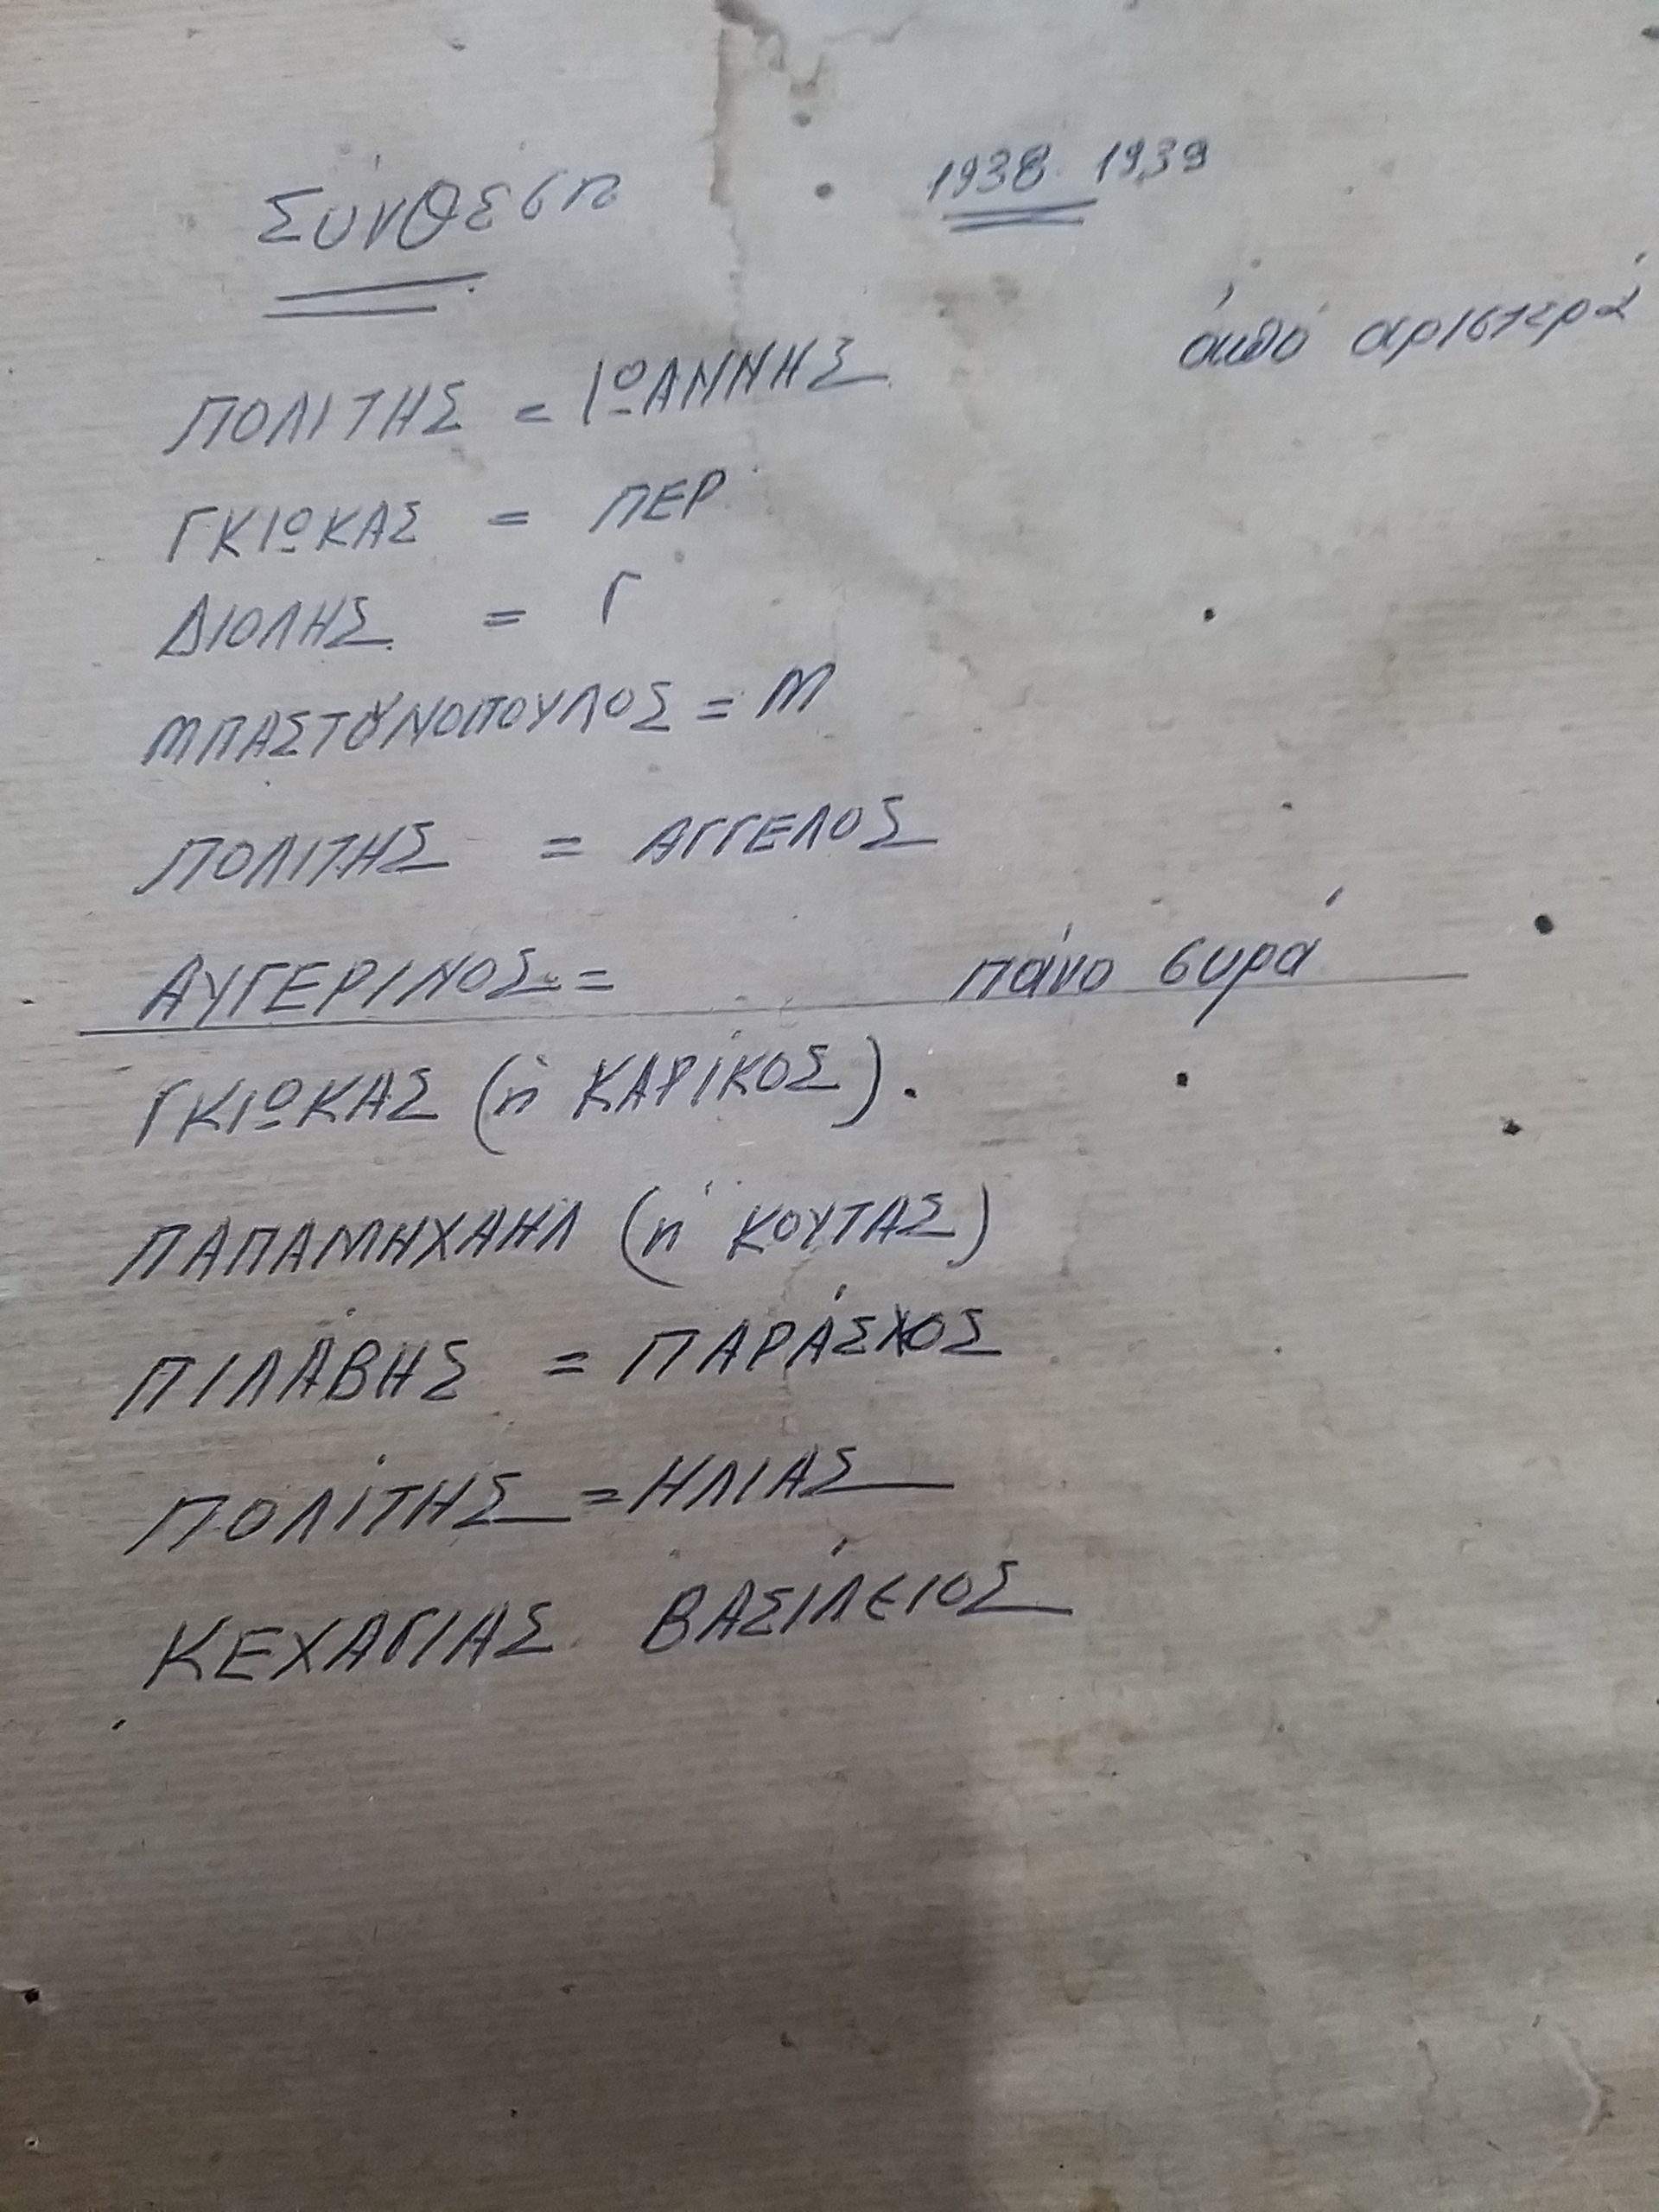 Σύνθεση 1938 1939
ἀπό αριστερά
ΠΟΛΙΤΗΣ = ΙΩΑΝΝΗΣ
ΓΚΙΩΚΑΣ = ΠΕΡ
ΔΙΟΛΗΣ = Γ
ΜΠΑΣΤΟΥΝΟΠΟΥΛΟΣ = Μ
ΠΟΛΙΤΗΣ = ΑΓΓΕΛΟΣ
ΑΥΓΕΡΙΝΟΣ = πάνο συρά
ΓΚΙΩΚΑΣ (ή ΚΑΡΊΚΟΣ).
ΠΑΠΑΜΗΧΑΗΛ (ή ΚΟΥΤΑΣ)
ΠΙΛΆΒΗΣ = ΠΑΡΆΣΧΟΣ
ΠΟΛΊΤΗΣ = ΗΛΙΑΣ
ΚΕΧΑΓΙΑΣ ΒΑΣΊΛΕΙΟΣ